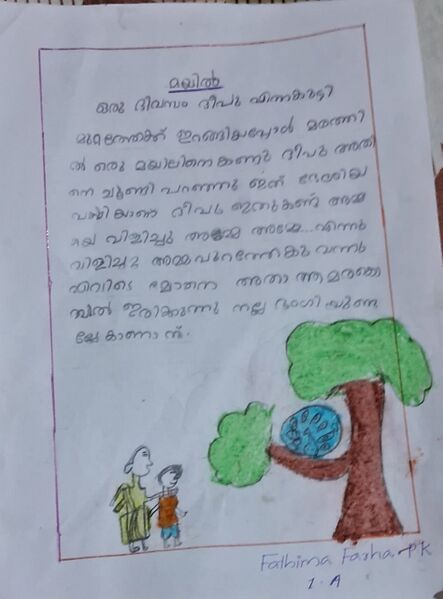 മയിൽ
ഒരു ദിവസം ദീപു എന്നകുട്ടി
മുറ്റത്തേക്ക് ഇറങ്ങിയപ്പോൾ മരത്തി
ൽ ഒരു മയിലിനെകണ്ടു ദീപു അതി
നെ ചൂണ്ടി പറഞ്ഞു ഇത് ദേശീയ
പക്ഷിയാണ ദീപു ഇതുകണ്ട് അമ്മ
യെ വിളിച്ചു അമ്മേ അമ്മേ... എന്നു
വിളിച്ചു അമ്മപുറത്തേക്കു വന്നു
എവിടെ മോനെ അതാ ആമരക്കൊ
മ്പിൽ ഇരിക്കുന്നു നല്ല ഭംഗിയുണ്ട
ല്ലേ കാണാൻ.
Fathima Fasha. PK
1. A